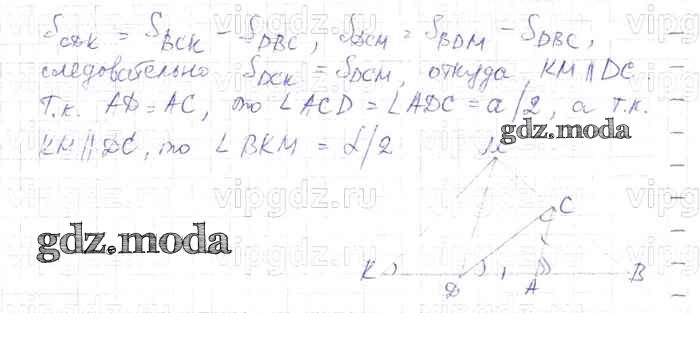 S_DCK = S_BCK - S_DBC, S_DCM = S_BDM - S_DBC,
следовательно S_DCK = S_DCM, откуда KM || DC.
Т.к. AD = AC, то ∠ACD = ∠ADC = α/2, а т.к.
KM || DC, то ∠BKM = α/2
gdz.moda
M
C
gdz.moda
K
D
A
B
vipgdz.ru